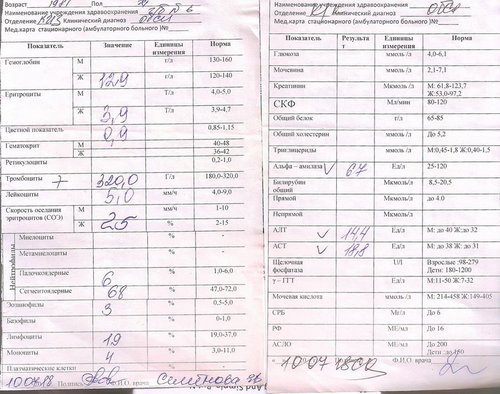 Возраст 1981 Пол
Наименование учреждения здравоохранения
Отделение Клинический диагноз
Мед.карта стационарного (амбулаторного больного )№
Показатель Значение Единицы измерения Норма
Гемоглобин М г/л 130-160
Ж 129 г/л 120-140
Эритроциты М Т/л 4,0-5,0
Ж 3,9 Т/л 3,9-4,7
Цветной показатель 0,9 0,85-1,15
Гематокрит М 40-48
Ж 36-42
Ретикулоциты 0,2-1,0
Тромбоциты 320,0 Г/л 180,0-320,0
Лейкоциты 5,0 мм/ч 4,0-9,0
Скорость оседания эритроцитов (СОЭ) М мм/ч 1-10
Ж 25 % 2-15
Нейтрофилы
Миелоциты % -
Метамиелоциты % -
Палочкоядерные 6 % 1,0-6,0
Сегментоядерные 68 % 47,0-72,0
Эозинофилы 3 % 0,5-5,0
Базофилы % 0-1,0
Лимфоциты 19 % 19,0-37,0
Моноциты 4 % 3,0-11,0
Плазматические клетки % -
Подпись Ф.И.О. врача
Наименование учреждения здравоохранения
Отделение Клинический диагноз
Мед.карта стационарного (амбулаторного больного )№
Показатель Результат Единицы измерения Норма
Глюкоза ммоль /л 4,0-6,1
Мочевина ммоль /л 2,1-7,1
Креатинин Мкмоль /л М: 61,8-123,7 Ж:53,0-97,2
СКФ Мл/мин 80-120
Общий белок г/л 65-85
Общий холестерин ммоль /л До 5,2
Триглицериды ммоль/л М:0,45-1,8 Ж:0,40-1,5
Альфа – амилаза 67 Ед/л 25-120
Билирубин общий Мкмоль/л 8,5-20,5
Прямой Мкмоль/л до 4.0
Непрямой Мкмоль/л
АЛТ 144 Ед/л М: до 40 Ж:до 32
АСТ Ед/л М: до 38 Ж: до 31
Щелочная фосфатаза U/l Взрослые :98-279 Дети: 180-1200
γ – ГТТ Ед/л М:11-50 Ж:7-32
Мочевая кислота Мкмоль /л М: 214-458 Ж:149-405
СРБ Мг/л До 6
РФ МЕ/мл До 16
АСЛО МЕ/мл До 200
Дети : до 150
Ф.И.О. врача